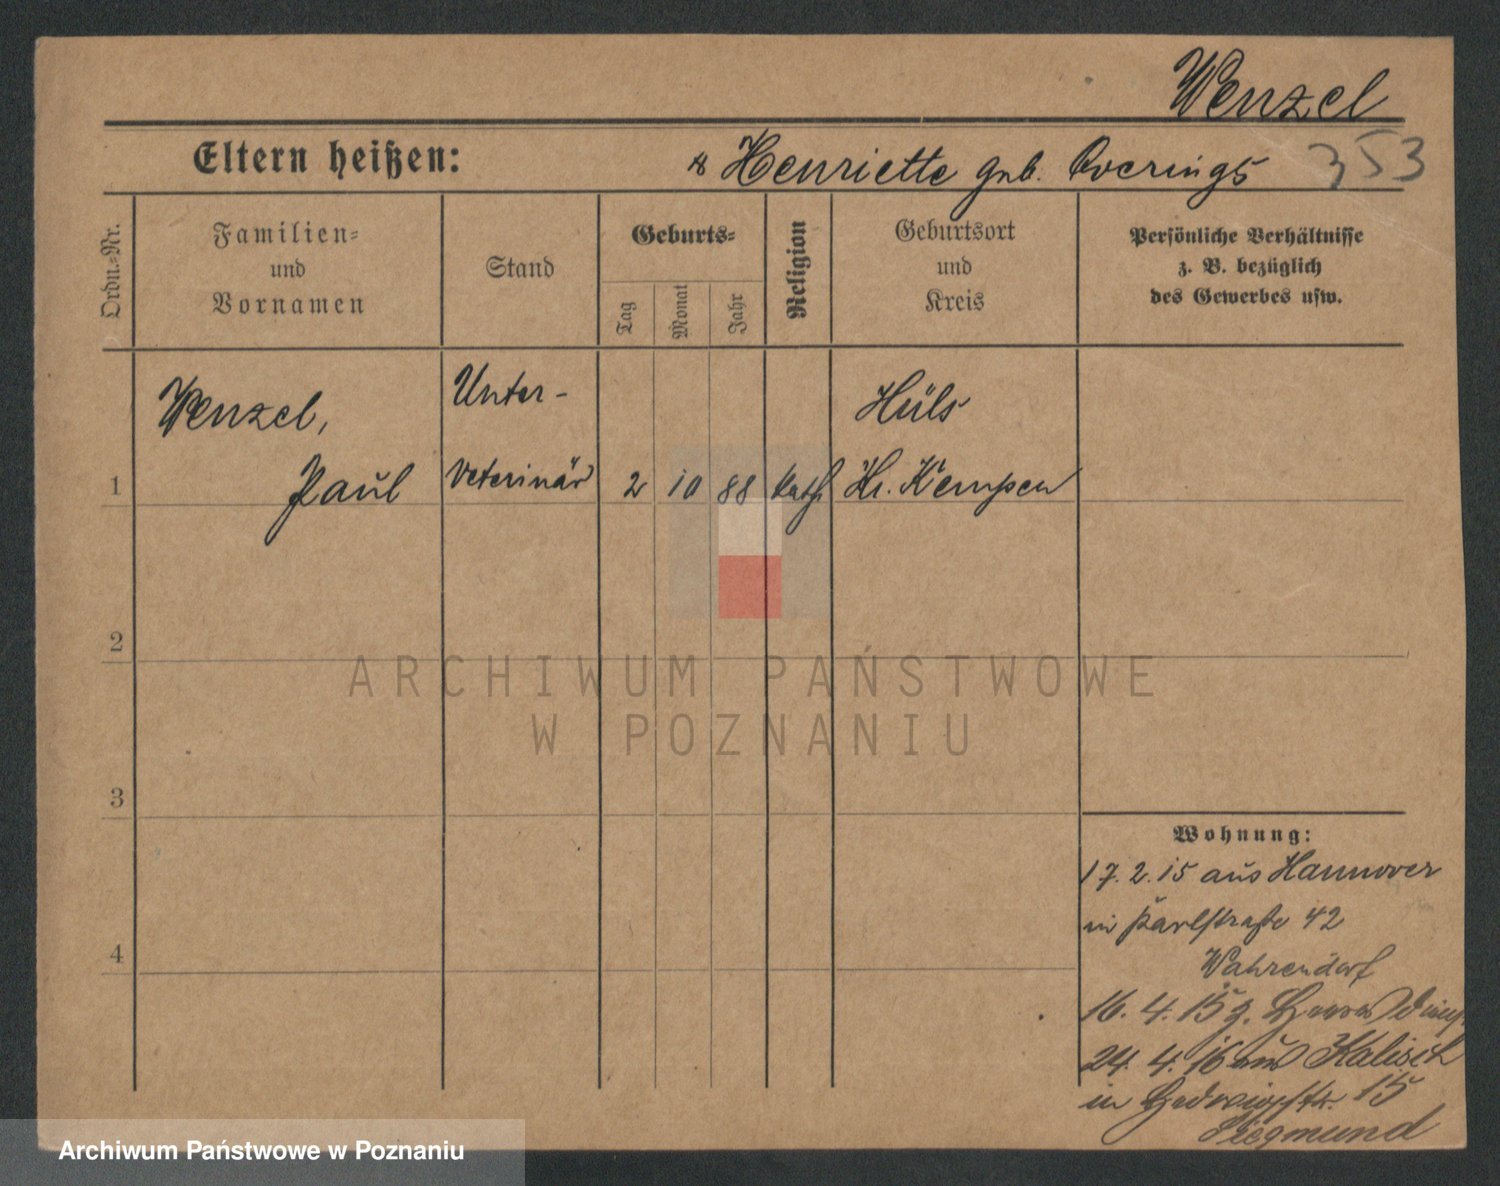 Wenzel
Eltern heißen:
Henriette geb. Overings
353
Ordn.-Nr.
Familien-
und
Vornamen
Stand
Geburts-
Tag
Monat
Jahr
Religion
Geburtsort
und
Kreis
Persönliche Verhältnisse
z. B. bezüglich
des Gewerbes usw.
1
Wenzel,
Paul
Unter-
Veterinär
2 10 88
kath
Hüls
Kr. Kempen
2
3
4
Wohnung:
17. 2. 15 aus Hannover
in Karlstraße 42
Wahrendorf
16. 4. 15 z.
24. 4. 16 aus Kalisch
in Hedwigstr. 15
Siegmund
ARCHIWUM PAŃSTWOWE
W POZNANIU
Archiwum Państwowe w Poznaniu